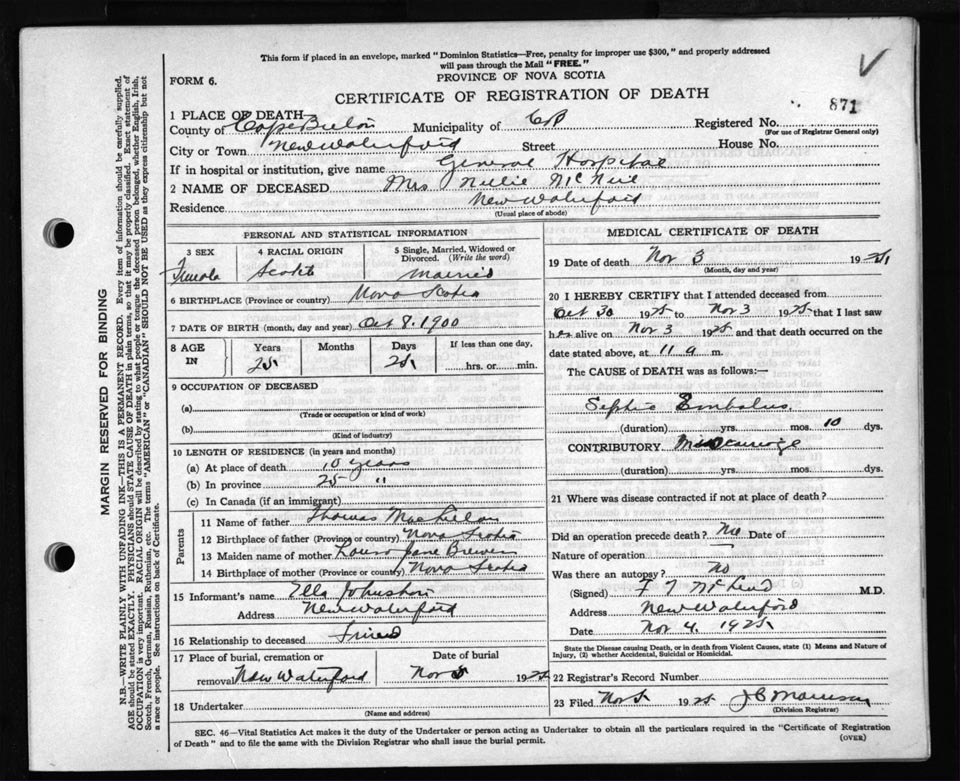 This form if placed in an envelope, marked "Dominion Statistics—Free, penalty for improper use $300," and properly addressed
will pass through the Mail "FREE."
FORM 6.
PROVINCE OF NOVA SCOTIA
CERTIFICATE OF REGISTRATION OF DEATH
871
1 PLACE OF DEATH—
County of Cape Breton Municipality of CB Registered No.
(For use of Registrar General only)
City or Town New Waterford Street House No.
If in hospital or institution, give name General Hospital
2 NAME OF DECEASED Mrs Nellie McNeil
Residence New Waterford
(Usual place of abode)
PERSONAL AND STATISTICAL INFORMATION
3 SEX 4 RACIAL ORIGIN 5 Single, Married, Widowed or
Divorced. (Write the word)
Female Scotch Married
6 BIRTHPLACE (Province or country) Nova Scotia
7 DATE OF BIRTH (month, day and year) Oct 8. 1900
8 AGE IN Years Months Days If less than one day,
25 25 hrs. or min.
9 OCCUPATION OF DECEASED
(a)
(Trade or occupation or kind of work)
(b)
(Kind of industry)
10 LENGTH OF RESIDENCE (in years and months)
(a) At place of death 10 years
(b) In province 25 "
(c) In Canada (if an immigrant)
Parents
11 Name of father Thomas
12 Birthplace of father (Province or country) Nova Scotia
13 Maiden name of mother Jane Brewer
14 Birthplace of mother (Province or country) Nova Scotia
15 Informant's name Ella Johnston
Address New Waterford
16 Relationship to deceased Friend
17 Place of burial, cremation or Date of burial
removal New Waterford Nov 5 1925
18 Undertaker
(Name and address)
MEDICAL CERTIFICATE OF DEATH
19 Date of death Nov 3 1925
(Month, day and year)
20 I HEREBY CERTIFY that I attended deceased from
Oct 30 1925 to Nov 3 1925 that I last saw
her alive on Nov 3 1925 and that death occurred on the
date stated above, at 11 a m.
The CAUSE of DEATH was as follows:—
Septic Embolus
(duration) yrs. mos. 10 dys.
CONTRIBUTORY Miscarriage
(duration) yrs. mos. dys.
21 Where was disease contracted if not at place of death?
Did an operation precede death? No Date of
Nature of operation
Was there an autopsy? No
(Signed) M.D.
Address New Waterford
Date Nov 4. 1925
State the Disease causing Death, or in death from Violent Causes, state (1) Means and Nature of
Injury, (2) whether Accidental, Suicidal or Homicidal.
22 Registrar's Record Number
23 Filed Nov 5 1925 Morrison
(Division Registrar)
SEC. 46—Vital Statistics Act makes it the duty of the Undertaker or person acting as Undertaker to obtain all the particulars required in the "Certificate of Registration
of Death" and to file the same with the Division Registrar who shall issue the burial permit.
(OVER)
MARGIN RESERVED FOR BINDING
N.B.—WRITE PLAINLY WITH UNFADING INK—THIS IS A PERMANENT RECORD. Every item of information should be carefully supplied.
AGE should be stated EXACTLY. PHYSICIANS should STATE CAUSE OF DEATH in plain terms, so that it may be properly classified. Exact statement of
OCCUPATION is very important. RACIAL ORIGIN will be described by stating to what people or tongue the deceased person belonged, whether English, Irish,
Scotch, French, German, Russian, Ruthenian, etc. The terms "AMERICAN" or "CANADIAN" SHOULD NOT BE USED as they express citizenship but not
a race or people. See instructions on back of Certificate.